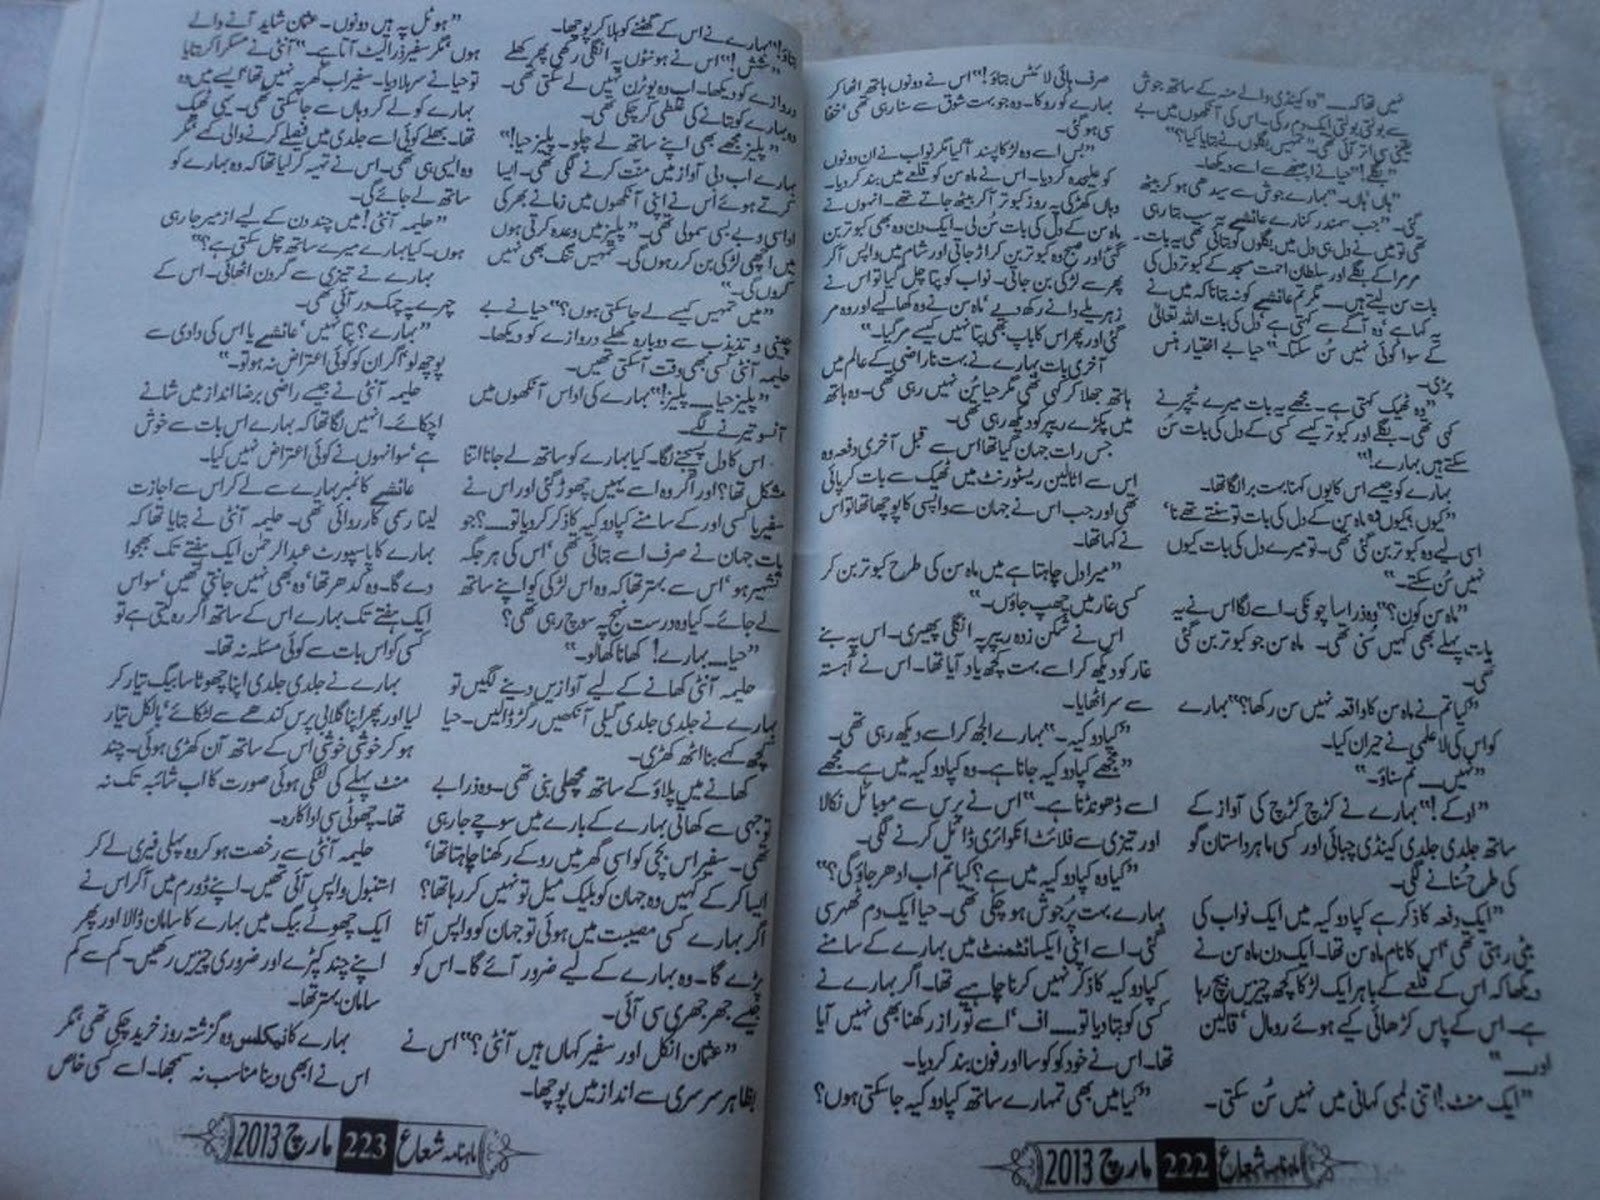 نہیں تھا کہ ــــ "وہ کینڈی والے منہ کے ساتھ جوش
سے بولتی بولتی ایک دم رکی۔ اس کی آنکھوں میں بے
یقینی سی اتر آئی تھی۔ "تمہیں بگلوں نے بتایا کیا؟"
"بگلے!" حیا نے اچنبھے سے اسے دیکھا۔
"ہاں ہاں۔" بہارے جوش سے سیدھی ہو کر بیٹھ
گئی۔ "جب سمندر کنارے عائشے یہ سب بتا رہی
تھی تو میں نے دل ہی دل میں بگلوں کو بتائی تھی یہ بات۔
مرمرا کے بگلے اور سلطان احمت مسجد کے کبوتر دل کی
بات سن لیتے ہیں ــــ مگر تم عائشے کو نہ بتانا کہ میں نے
یہ کہا ہے وہ آگے سے کہتی ہے' دل کی بات اللہ تعالیٰ
کے سوا کوئی نہیں سُن سکتا۔" حیا بے اختیار ہنس
پڑی۔
"وہ ٹھیک کہتی ہے۔ مجھے یہ بات میرے ٹیچر نے
کہی تھی۔ بگلے اور کبوتر کیسے کسی کے دل کی بات سُن
سکتے ہیں بہارے!"
بہارے کو جیسے اس کا یوں کہنا بہت برا لگا تھا۔
"کیوں؟ کیوں وہ ماہ سن کے دل کی بات تو سنتے تھے نا'
اسی لیے وہ کبوتر بن گئی تھی۔ تو میرے دل کی بات کیوں
نہیں سُن سکتے۔"
"ماہ سن کون؟" وہ ذرا سا چونکی۔ اسے لگا اس نے یہ
بات پہلے بھی کہیں سُنی تھی۔ ماہ سن جو کبوتر بن گئی
تھی۔
"کیا تم نے ماہ سن کا واقعہ نہیں سن رکھا؟" بہارے
کو اس کی لا علمی نے حیران کیا۔
"نہیں ــــ تم سناؤ۔"
"اوکے!" بہارے نے کڑچ کڑچ کی آواز کے
ساتھ جلدی جلدی کینڈی چبائی اور کسی ماہر داستان گو
کی طرح سُنانے لگی۔
"ایک دفعہ کا ذکر ہے کپادوکیہ میں ایک نواب کی
بیٹی رہتی تھی' اس کا نام ماہ سن تھا۔ ایک دن ماہ سن نے
دیکھا کہ اس کے قلعے کے باہر ایک لڑکا کچھ چیزیں بیچ رہا
ہے۔ اس کے پاس کڑھائی کیے ہوئے رومال' قالین
اور ــــ"
"ایک منٹ! اتنی لمبی کہانی میں نہیں سُن سکتی۔
صرف ہائی لائٹس بتاؤ!" اس نے دونوں ہاتھ اٹھا کر
بہارے کو روکا۔ وہ جو بہت شوق سے سنا رہی تھی' خفا
سی ہو گئی۔
"بس اسے وہ لڑکا پسند آ گیا مگر نواب نے ان دونوں
کو علیحدہ کر دیا۔ اس نے ماہ سن کو قلعے میں بند کر دیا۔
وہاں کھڑکی پہ روز کبوتر آ کر بیٹھ جاتے تھے۔ انہوں نے
ماہ سن کے دل کی بات سُن لی۔ ایک دن وہ بھی کبوتر بن
گئی اور صبح وہ کبوتر بن کر اڑ جاتی اور شام میں واپس آ کر
پھر سے لڑکی بن جاتی۔ نواب کو پتا چل گیا تو اس نے
زہریلے دانے رکھ دیے' ماہ سن نے وہ کھا لیے اور وہ مر
گئی اور پھر اس کا باپ بھی پتا نہیں کیسے مر گیا۔"
آخری بات بہارے نے بہت ناراضی کے عالم میں
ہاتھ جھلا کر کہی تھی مگر حیا سُن نہیں رہی تھی۔ وہ ہاتھ
میں پکڑے ریپر کو دیکھ رہی تھی۔
جس رات جہان گیا تھا اس سے قبل آخری دفعہ وہ
اس سے اٹالین ریسٹورنٹ میں ٹھیک سے بات کر پائی
تھی اور جب اس نے جہان سے واپسی کا پوچھا تھا تو اس
نے کہا تھا۔
"میرا دل چاہتا ہے میں ماہ سن کی طرح کبوتر بن کر
کسی غار میں چھپ جاؤں۔"
اس نے شکن زدہ ریپر پہ انگلی پھیری۔ اس پہ بنے
غار کو دیکھ کر اسے بہت کچھ یاد آیا تھا۔ اس نے آہستہ
سے سر اٹھایا۔
"کپادوکیہ۔" بہارے الجھ کر اسے دیکھ رہی تھی۔
"مجھے کپادوکیہ جانا ہے۔ وہ کپادوکیہ میں ہے۔ مجھے
اسے ڈھونڈنا ہے۔" اس نے پرس سے موبائل نکالا
اور تیزی سے فلائٹ انکوائری ڈائل کرنے لگی۔
"کیا وہ کپادوکیہ میں ہے؟ کیا تم اب ادھر جاؤ گی؟"
بہارے بہت پُرجوش ہو چکی تھی۔ حیا ایک دم ٹھہر سی
گئی۔ اسے اپنی ایکسائٹمنٹ میں بہارے کے سامنے
کپادوکیہ کا ذکر نہیں کرنا چاہیے تھا۔ اگر بہارے نے
کسی کو بتا دیا تو ــــ اف' اسے تو راز رکھنا بھی نہیں آیا
تھا۔ اس نے خود کو کوسا اور فون بند کر دیا۔
"کیا میں بھی تمہارے ساتھ کپادوکیہ جا سکتی ہوں؟
ماہنامہ شعاع 222 مارچ 2013
بتاؤ!" بہارے نے اس کے گھٹنے کو ہلا کر پوچھا۔
"شش!" اس نے ہونٹوں پہ انگلی رکھی پھر کھلے
دروازے کو دیکھا۔ اب وہ یوٹرن نہیں لے سکتی تھی۔
وہ بہارے کو بتانے کی غلطی کر چکی تھی۔
"پلیز مجھے بھی اپنے ساتھ لے چلو۔ پلیز حیا!"
بہارے اب دبی آواز میں منّت کرنے لگی تھی۔ ایسا
کرتے ہوئے اس نے اپنی آنکھوں میں زمانے بھر کی
اداسی و بے بسی سمولی تھی۔ "پلیز میں وعدہ کرتی ہوں
میں اچھی لڑکی بن کر رہوں گی۔ تمہیں تنگ بھی نہیں
کروں گی۔"
"میں تمہیں کیسے لے جا سکتی ہوں؟" حیا نے بے
چینی و تذبذب سے دوبارہ کھلے دروازے کو دیکھا۔
حلیمہ آنٹی کسی بھی وقت آ سکتی تھیں۔
"پلیز حیا ــــ پلیز!" بہارے کی اداس آنکھوں میں
آنسو تیرنے لگے۔
اس کا دل پسیجنے لگا۔ کیا بہارے کو ساتھ لے جانا اتنا
مشکل تھا؟ اور اگر وہ اسے یہیں چھوڑ گئی اور اس نے
سفیر یا کسی اور کے سامنے کپادوکیہ کا ذکر کر دیا تو ــــ؟ جو
بات جہان نے صرف اسے بتائی تھی' اس کی ہر جگہ
تشہیر ہو' اس سے بہتر تھا کہ وہ اس لڑکی کو اپنے ساتھ
لے جائے۔ کیا وہ درست نہج پہ سوچ رہی تھی؟
"حیا ــــ بہارے! کھانا کھا لو۔"
حلیمہ آنٹی کھانے کے لیے آوازیں دینے لگیں تو
بہارے نے جلدی جلدی گیلی آنکھیں رگڑ ڈالیں۔ حیا
کچھ کہے بنا اٹھ کھڑی۔
کھانے میں پلاؤ کے ساتھ مچھلی بنی تھی۔ وہ ذرا بے
توجہی سے کھاتی بہارے کے بارے میں سوچے جا رہی
تھی۔ سفیر اس بچی کو اسی گھر میں روکے رکھنا چاہتا تھا'
ایسا کر کے کہیں وہ جہان کو بلیک میل تو نہیں کر رہا تھا؟
اگر بہارے کسی مصیبت میں ہوئی تو جہان کو واپس آنا
پڑے گا۔ وہ بہارے کے لیے ضرور آئے گا۔ اس کو
جیسے جھرجھری سی آئی۔
"عثمان انکل اور سفیر کہاں ہیں آنٹی؟" اس نے
بظاہر سرسری سے انداز میں پوچھا۔
"ہوٹل پہ ہیں دونوں۔ عثمان شاید آنے والے
ہوں' مگر سفیر ذرا لیٹ آتا ہے۔" آنٹی نے مسکرا کر بتایا
تو حیا نے سر ہلا دیا۔ سفیر اب گھر پہ نہیں تھا' ایسے میں وہ
بہارے کو لے کر وہاں سے جا سکتی تھی۔ یہی ٹھیک
تھا۔ بھلے کوئی اسے جلدی میں فیصلے کرنے والی کہے' مگر
وہ ایسی ہی تھی۔ اس نے تہیہ کر لیا تھا کہ وہ بہارے کو
ساتھ لے جائے گی۔
"حلیمہ آنٹی! میں چند دن کے لیے ازمیر جا رہی
ہوں۔ کیا بہارے میرے ساتھ چل سکتی ہے؟"
بہارے نے تیزی سے گردن اٹھائی۔ اس کے
چہرے پہ چمک در آئی تھی۔
"بہارے؟ پتا نہیں' عائشے یا اس کی دادی سے
پوچھ لو' اگر ان کو کوئی اعتراض نہ ہو تو۔"
حلیمہ آنٹی نے جیسے راضی برضا انداز میں شانے
اچکائے۔ انہیں لگا تھا کہ بہارے اس بات سے خوش
ہے' سو انہوں نے کوئی اعتراض نہیں کیا۔
عائشے کا نمبر بہارے سے لے کر اس سے اجازت
لینا رسمی کارروائی تھی۔ حلیمہ آنٹی نے بتایا تھا کہ
بہارے کا پاسپورٹ عبدالرحمٰن ایک ہفتے تک بھجوا
دے گا۔ وہ کدھر تھا' وہ بھی نہیں جانتی تھیں' سو اس
ایک ہفتے تک بہارے اس کے ساتھ اگر رہ لیتی ہے تو
کسی کو اس بات سے کوئی مسئلہ نہ تھا۔
بہارے نے جلدی جلدی اپنا چھوٹا سا بیگ تیار کر
لیا اور پھر اپنا گلابی پرس کندھے سے لٹکائے' بالکل تیار
ہو کر خوشی خوشی اس کے ساتھ آن کھڑی ہوئی۔ چند
منٹ پہلے کی لٹکی ہوئی صورت کا اب شائبہ تک نہ
تھا۔ چھوٹی سی اداکارہ۔
حلیمہ آنٹی سے رخصت ہو کر وہ پہلی فیری لے کر
استنبول واپس آئی تھیں۔ اپنے ڈورم میں آ کر اس نے
ایک چھوٹے بیگ میں بہارے کا سامان ڈالا اور پھر
اپنے چند کپڑے اور ضروری چیزیں رکھیں۔ کم سے کم
سامان بہتر تھا۔
بہارے کا نیکلس وہ گزشتہ روز خرید چکی تھی' مگر
اس نے ابھی دینا مناسب نہ سمجھا۔ اسے کسی خاص
ماہنامہ شعاع 223 مارچ 2013